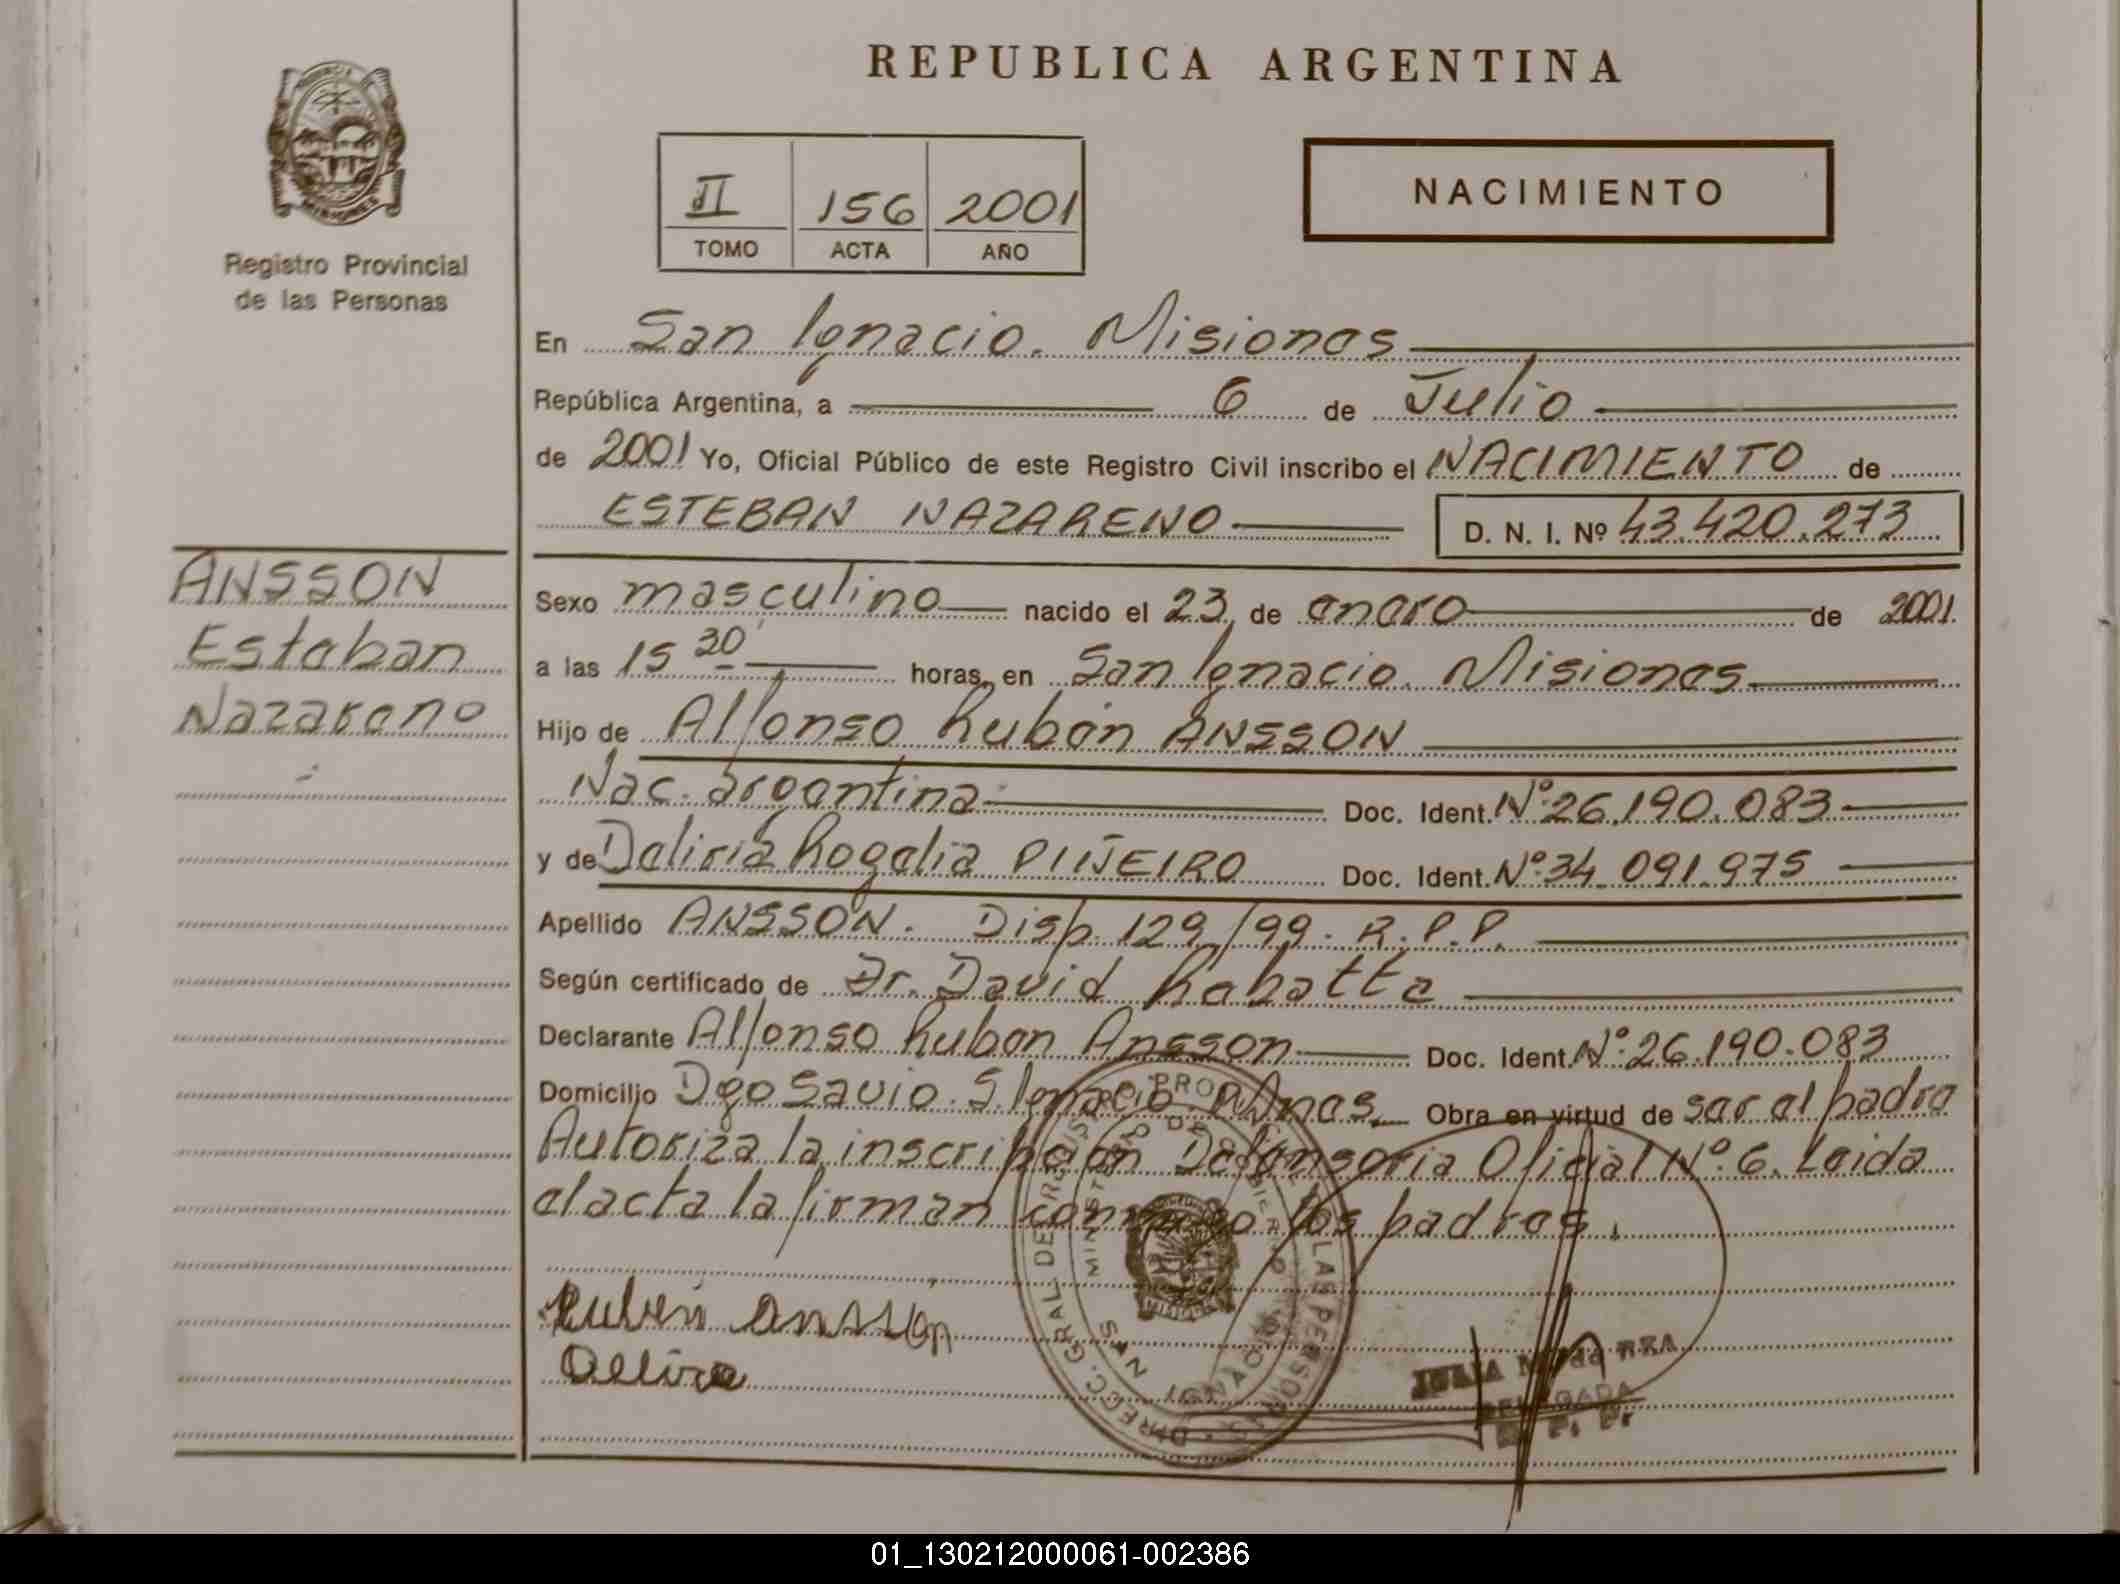 REPUBLICA ARGENTINA
Registro Provincial
de las Personas
II 156 2001
TOMO ACTA AÑO
NACIMIENTO
En San Ignacio. Misiones
República Argentina, a 6 de Julio
de 2001 Yo, Oficial Público de este Registro Civil inscribo el NACIMIENTO de
ESTEBAN NAZARENO D. N. I. Nº 43.420.273
ANSSON
Esteban
Nazareno
Sexo masculino nacido el 23 de enero de 2001.
a las 15 30 horas, en San Ignacio. Misiones
Hijo de Alfonso Rubén ANSSON
Nac. argentina Doc. Ident. Nº: 26.190.083
y de Delicia Rogelia PIÑEIRO Doc. Ident. Nº: 34.091.975
Apellido ANSSON. Disp. 129/99. R.P.P.
Según certificado de Dr. David
Declarante Alfonso Ruben Ansson Doc. Ident. Nº: 26.190.083
Domicilio Dgo Savio. S. Ignacio. Mnes. Obra en virtud de ser el padre
Autoriza la inscripción Defensoria Oficial Nº: 6. Leida
el acta la firman conmigo los padres.
Ruben Ansson
DIRECC. GRAL. DE REGISTRO PROVINCIAL DE LAS PERSONAS
MINISTERIO DE GOBIERNO
MISIONES
JULIA
DELEGADA
01_130212000061-002386